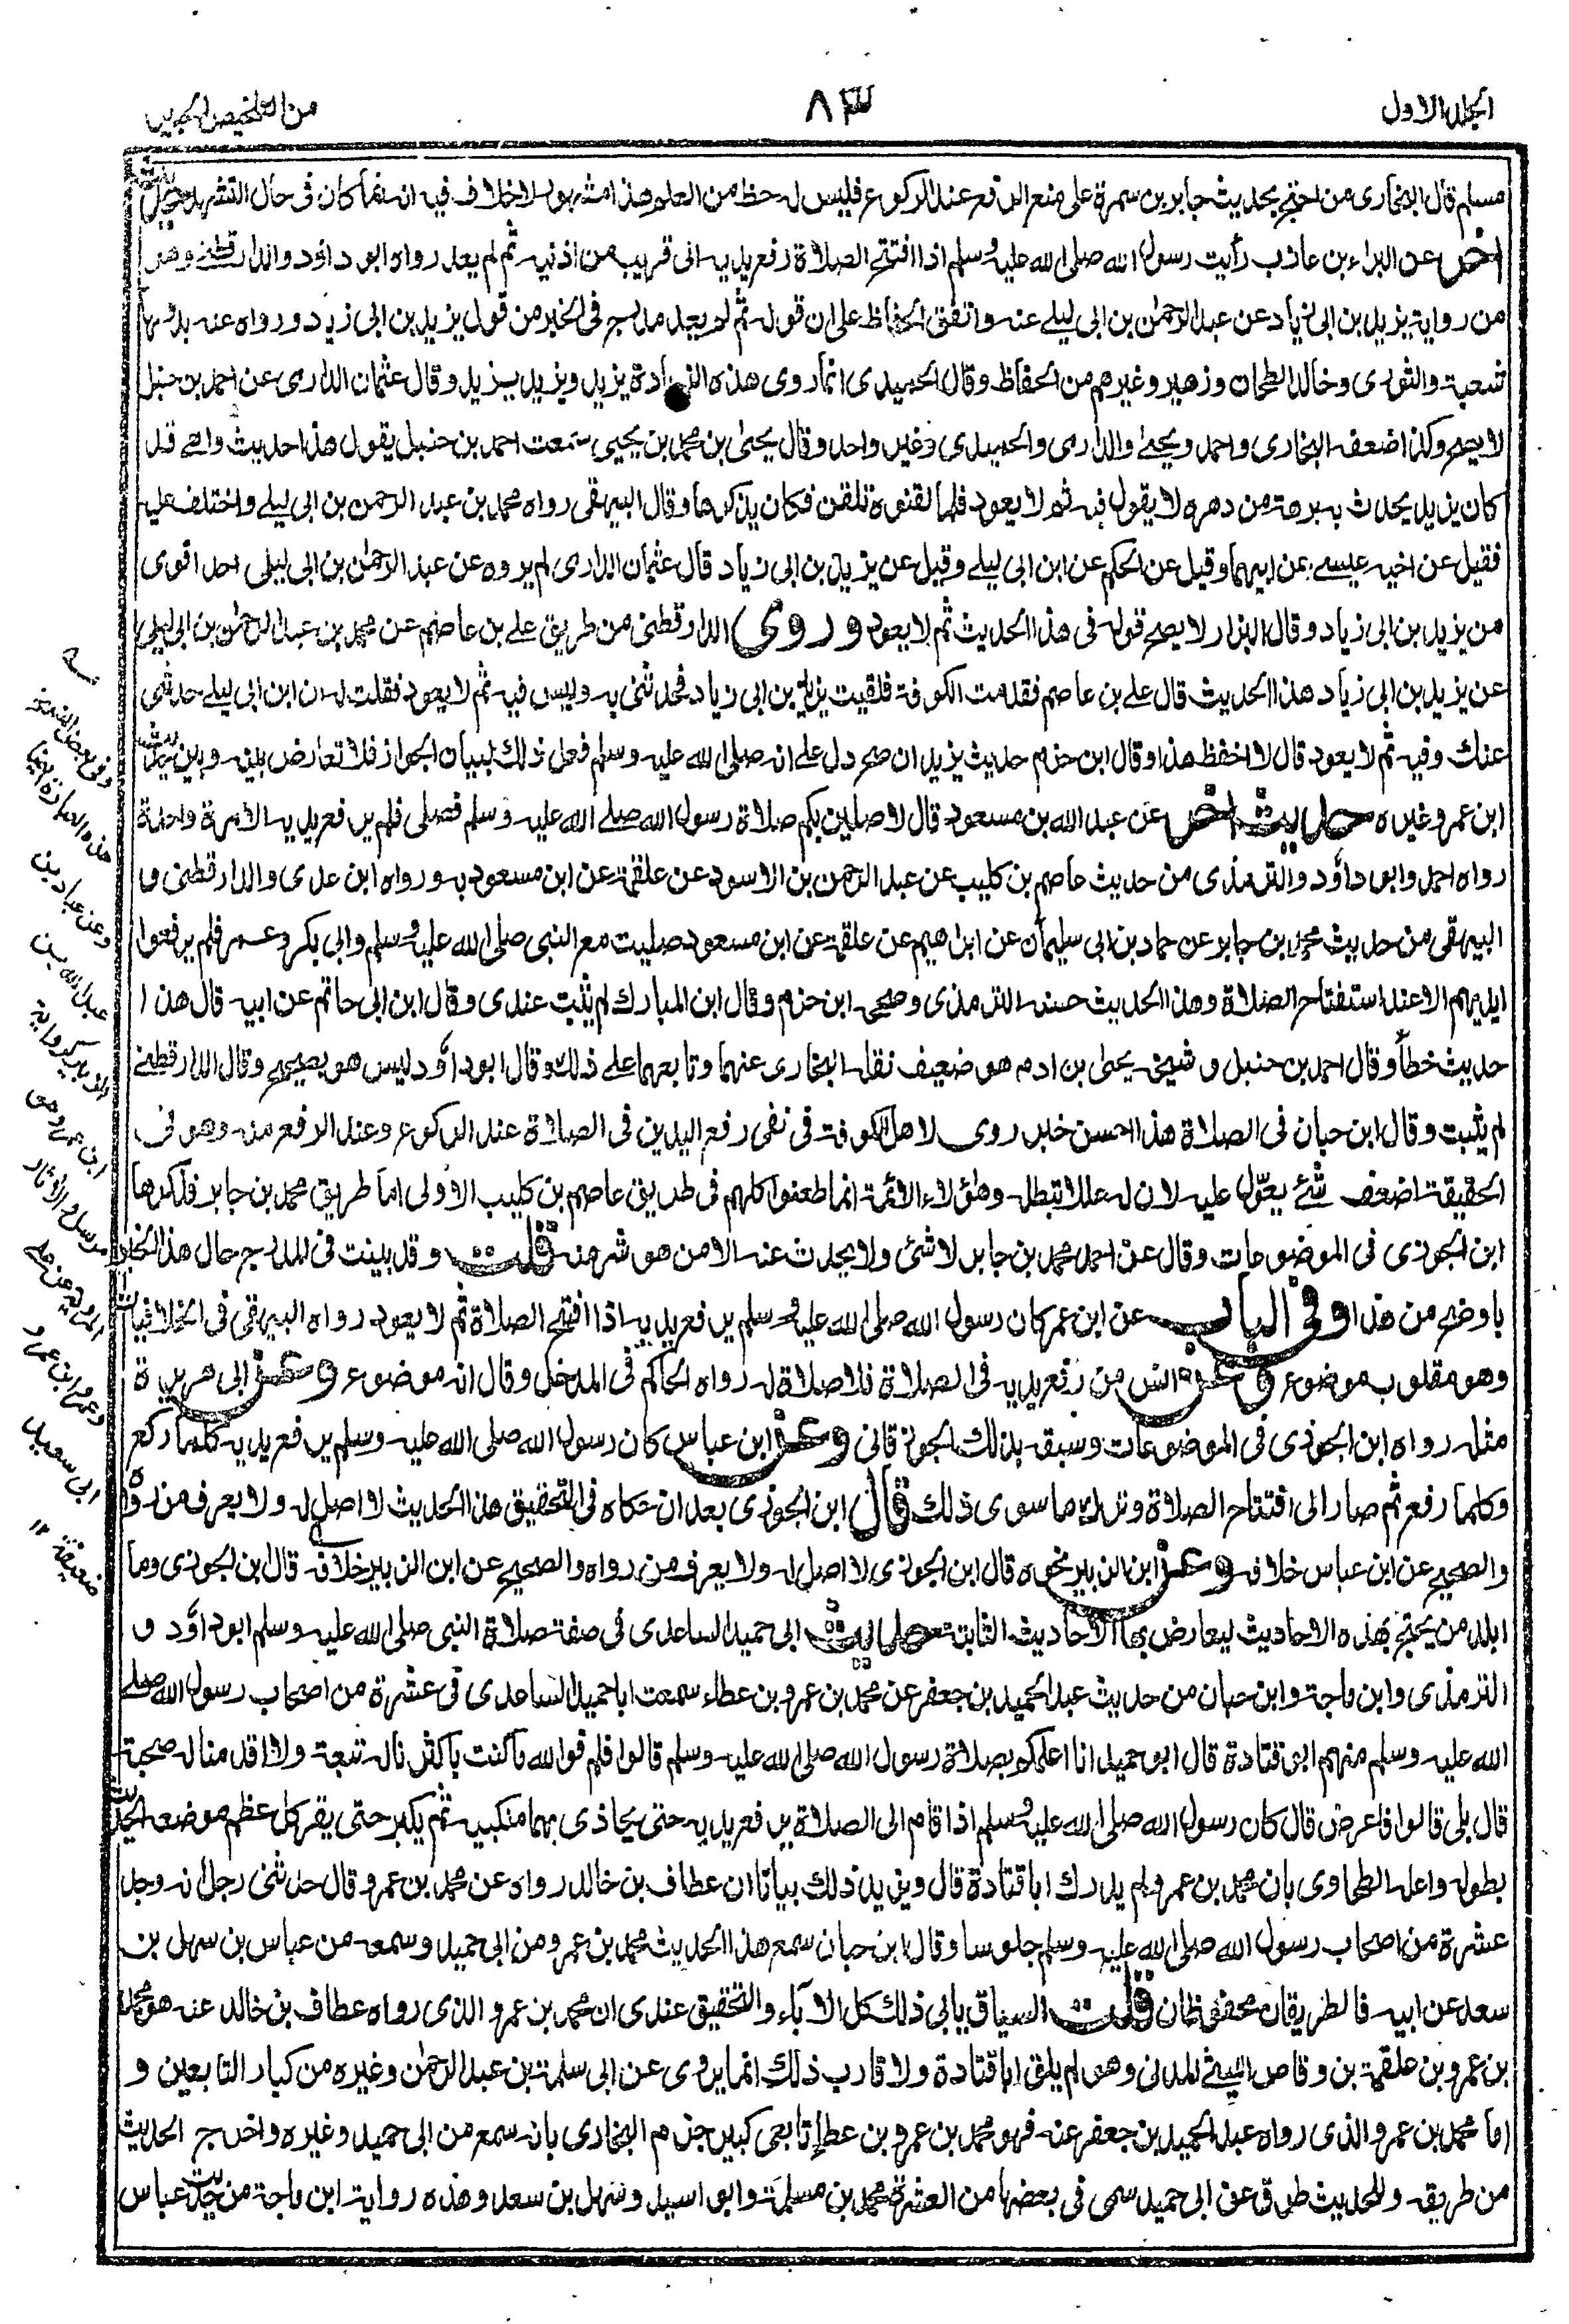 الجلد الاول
٨٣
من التلخيص الحبير
مسلم قال البخاري من احتج بحديث جابر بن سمرة على منع الرفع عند الركوع فليس له حظ من العلم هذا مشهور لا خلاف فيه انه انما كان في حال التشهد حديث
اخر عن البراء بن عازب رأيت رسول الله صلى الله عليه وسلم اذا افتتح الصلاة رفع يديه الى قريب من اذنيه ثم لم يعد رواه ابو داؤد والدارقطني وهو
من رواية يزيد بن ابى زياد عن عبد الرحمٰن بن ابى ليلے عنه واتفق الحفاظ على ان قوله ثم لم يعد مدرج في الخبر من قول يزيد بن ابى زياد ورواه عنه بدونها
شعبة والثوري وخالد الطحان وزهير وغيرهم من الحفاظ وقال الحميدي انما روى هذه الزيادة يزيد ويزيد يزيد وقال عثمان الدارمى عن احمد بن حنبل
لا يصح وكذا ضعفه البخاري واحمد ويحيىٰ والدارمى والحميدي وغير واحد وقال يحيىٰ بن محمد بن يحيى سمعت احمد بن حنبل يقول هذا حديث واهے قد
كان يزيد يحدث به برهة من دهره لا يقول فيه ثم لا يعود فلما لقنوه تلقن فكان يذكرها وقال البيهقى رواه محمد بن عبد الرحمن بن ابى ليلے واختلف عليه
فقيل عن اخيه عيسے عن ابيهما وقيل عن الحكم عن ابن ابى ليلے وقيل عن يزيد بن ابى زياد قال عثمان الدارمى لم يروه عن عبد الرحمٰن بن ابى ليلى احد اقوى
من يزيد بن ابى زياد وقال البزار لا يصح قوله فى هذا الحديث ثم لا يعود وروى الدارقطنى من طريق علے بن عاصم عن محمد بن عبد الرحمٰن بن ابى ليلى
عن يزيد بن ابى زياد هذا الحديث قال علے بن عاصم فقدمت الكوفة فلقيت يزيد بن ابى زياد فحدثنى به وليس فيه ثم لا يعود فقلت له ان ابن ابى ليلے حدثنى
عنك وفيه ثم لا يعود قال لا احفظ هذا وقال ابن حزم حديث يزيد ان صح دل علے انه صلى الله عليه وسلم فعل ذلك لبيان الجواز فلا تعارض بينه وبين حديث
ابن عمر وغيره حديث اخر عن عبد الله بن مسعود قال لاصلين بكم صلاة رسول الله صلے الله عليه وسلم فصلى فلم يرفع يديه الا مرة واحدة
رواه احمد وابو داؤد والترمذى من حديث عاصم بن كليب عن عبد الرحمن بن الاسود عن علقمة عن ابن مسعود به ورواه ابن عدى والدارقطنى و
البيهقى من حديث محمد بن جابر عن حماد بن ابى سليمان عن ابراهيم عن علقمة عن ابن مسعود صليت مع النبى صلى الله عليه وسلم وابى بكر وعمر فلم يرفعوا
ايديهم الا عند استفتاح الصلاة وهذا الحديث حسنه الترمذى وصححه ابن حزم وقال ابن المبارك لم يثبت عندى وقال ابن ابى حاتم عن ابيه قال هذا
حديث خطأ وقال احمد بن حنبل وشيخه يحيىٰ بن ادم هو ضعيف نقله البخارى عنهما وتابعهما علے ذلك وقال ابو داؤد ليس هو بصحيح وقال الدارقطنے
لم يثبت وقال ابن حبان فى الصلاة هذا احسن خبر روى لاهل الكوفة فى نفى رفع اليدين فى الصلاة عند الركوع وعند الرفع منه وهو فى
الحقيقة اضعف شئ يعوّل عليه لان له عللا تبطله وهؤلاء الائمة انما طعنوا كلهم فى طريق عاصم بن كليب الاولى اما طريق محمد بن جابر فذكرها
ابن الجوزى فى الموضوعات وقال عن احمد محمد بن جابر لا شئ ولا يحدث عنه الا من هو شر منه قلت وقد بينت فى المدرج حال هذا الخبر
باوضح من هذا وفى الباب عن ابن عمر كان رسول الله صلى الله عليه وسلم يرفع يديه اذا افتتح الصلاة ثم لا يعود رواه البيهقى فى الخلافيات
وهو مقلوب موضوع وعن انس من رفع يديه فى الصلاة فلا صلاة له رواه الحاكم فى المدخل وقال انه موضوع وعن ابى هريرة
مثله رواه ابن الجوزى فى الموضوعات وسبقه بذلك الجوزقانى وعن ابن عباس كان رسول الله صلى الله عليه وسلم يرفع يديه كلما ركع
وكلما رفع ثم صار الى افتتاح الصلاة وترك ما سوى ذلك قال ابن الجوزى بعد ان حكاه فى التحقيق هذا الحديث لا اصل له ولا يعرف من رواه
والصحيح عن ابن عباس خلافه وعن ابن الزبير نحوه قال ابن الجوزى لا اصل له ولا يعرف من رواه والصحيح عن ابن الزبير خلافه قال بن الجوزى وما
ابلد من يحتج بهذه الاحاديث ليعارض بها الاحاديث الثابتة حديث ابى حميد الساعدى فى صفة صلاة النبى صلى الله عليه وسلم ابو داؤد و
الترمذى وابن ماجة وابن حبان من حديث عبد الحميد بن جعفر عن محمد بن عمرو بن عطاء سمعت ابا حميد الساعدى فى عشرة من اصحاب رسول الله صلے
الله عليه وسلم منهم ابو قتادة قال ابو حميد انا اعلمكم بصلاة رسول الله صلى الله عليه وسلم قالوا فلم فوالله ما كنت باكثرنا له تبعة ولا اقدمنا له صحبة
قال بلى قالوا فاعرض قال كان رسول الله صلى الله عليه وسلم اذا قام الى الصلاة يرفع يديه حتى يحاذى بهما منكبيه ثم يكبر حتى يقر كل عظم موضعه الحديث
بطوله واعله الطحاوى بان محمد بن عمرو لم يدرك ابا قتادة قال ويزيد ذلك بيانا ان عطاف بن خالد رواه عن محمد بن عمرو قال حدثنى رجل انه وجد
عشرة من اصحاب رسول الله صلى الله عليه وسلم جلوسا وقال ابن حبان سمع هذا الحديث محمد بن عمرو من ابى حميد وسمعه من عباس بن سهل بن
سعد عن ابيه فالطريقان محفوظان قلت السياق يابى ذلك كل الاباء والتحقيق عندى ان محمد بن عمرو الذى رواه عطاف بن خالد عنه هو محمد
بن عمرو بن علقمة بن وقاص الليثے المدنى وهو لم يلق ابا قتادة ولا قارب ذلك انما يروى عن ابى سلمة بن عبد الرحمٰن وغيره من كبار التابعين و
اما محمد بن عمرو الذى رواه عبد الحميد بن جعفر عنه فهو محمد بن عمرو بن عطاء تابعى كبير جزم البخارى بانه سمع من ابى حميد وغيره واخرج الحديث
من طريقه وللحديث طرق عن ابى حميد سمى فى بعضها من العشرة محمد بن مسلمة وابو اسيد وسهل بن سعد وهذه رواية ابن ماجة من حديث عباس
وفى بعض النسخ
هذه العبارة ايضا
وعن عباد بن
عبد الله بن
الزبير كرواية
ابن عمر وهو
مرسل والآثار
المروية عن علے
وعمر وابن عمر و
ابى سعيد
ضعيفة ١٢